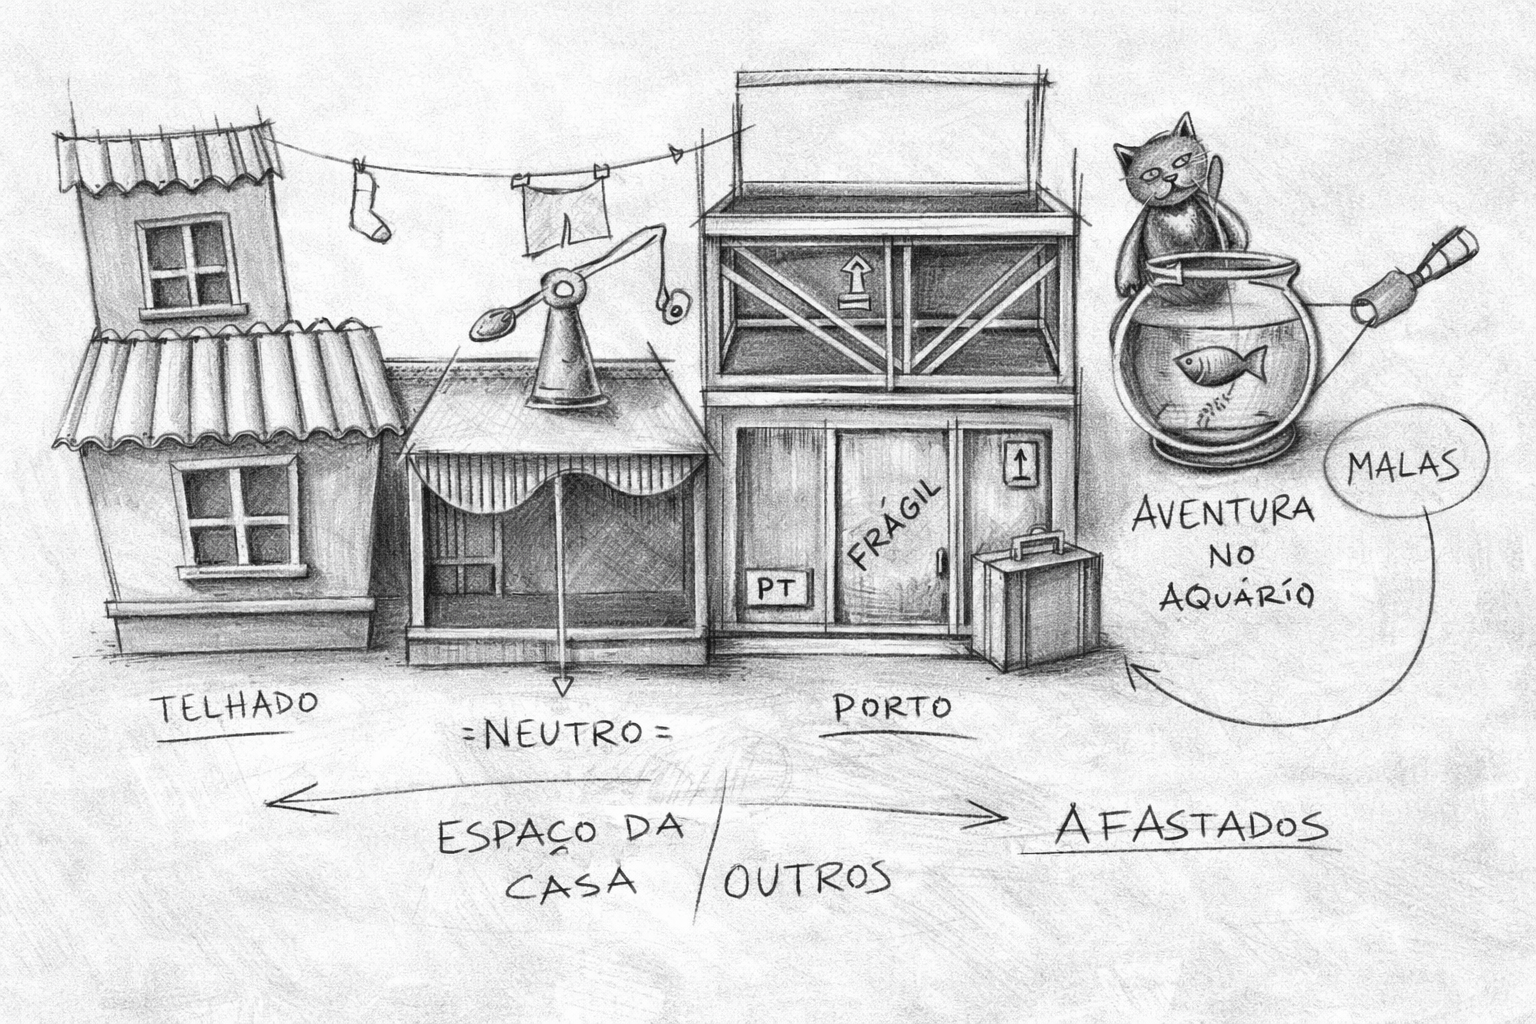 FRÁGIL
PT
MALAS
AVENTURA
NO
AQUÁRIO
TELHADO
=NEUTRO=
PORTO
ESPAÇO DA
CASA
/OUTROS
AFASTADOS